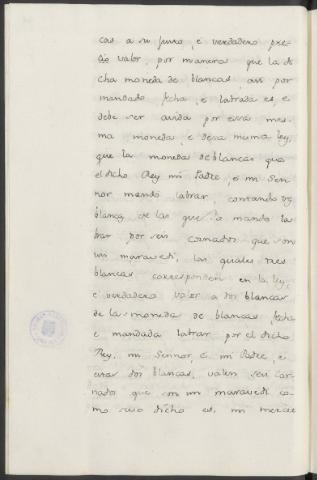 cas a su justo, e verdadero pre-
cio valor, por manera que la di
cha moneda de blancas, assi por
mandado fecha, e labrada es, e
debe ser avida por essa mes-
ma moneda, e desa misma ley,
que la moneda de blancas que
el dicho Rey mi Padre, e mi Sen-
nor mandó labrar, contando
blanca de las que mando la
brar por seis cornados que son
un maravedi, las quales tres
blancas corresponden en la ley,
e verdadero valor a dos blancas
de la moneda de blancas, fecha
e mandada labrar por el dicho
Rey, mi Sennor, e mi Padre, e
esas dos blancas, valen seis cor-
nados que son un maravedi co-
mo suso dicho es, mi merced